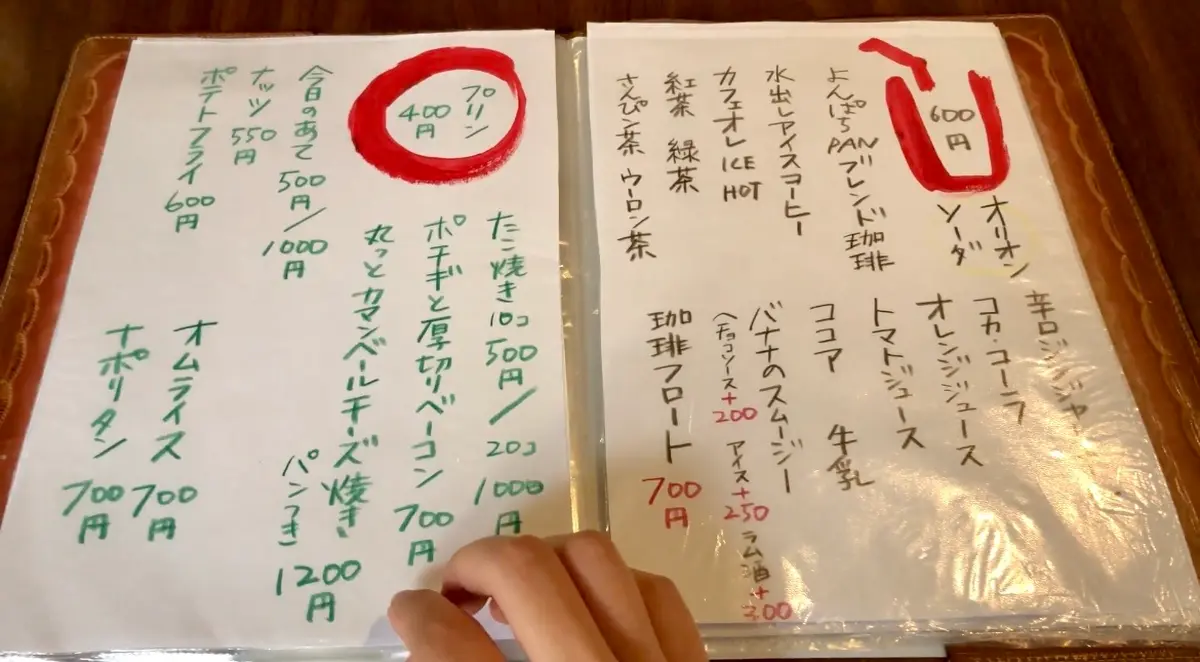 600円
オリオン
ソーダ
よんぱちPANブレンド珈琲
水出しアイスコーヒー
カフェオレ ICE HOT
紅茶 緑茶
さんぴン茶 ウーロン茶
辛口ジンジャー
コカ・コーラ
オレンジジュース
トマトジュース
ココア 牛乳
バナナのスムージー
チョコソース+200 アイス+250 ラム酒+300
珈琲フロート 700円
プリン
400円
今日のあて 500円/1000円
ナッツ 550円
ポテトフライ 600円
たこ焼き 10コ 500円/20コ 1000円
ポテギと厚切りベーコン 700円
丸っとカマンベールチーズ焼き
パンつき 1200円
オムライス 700円
ナポリタン 700円